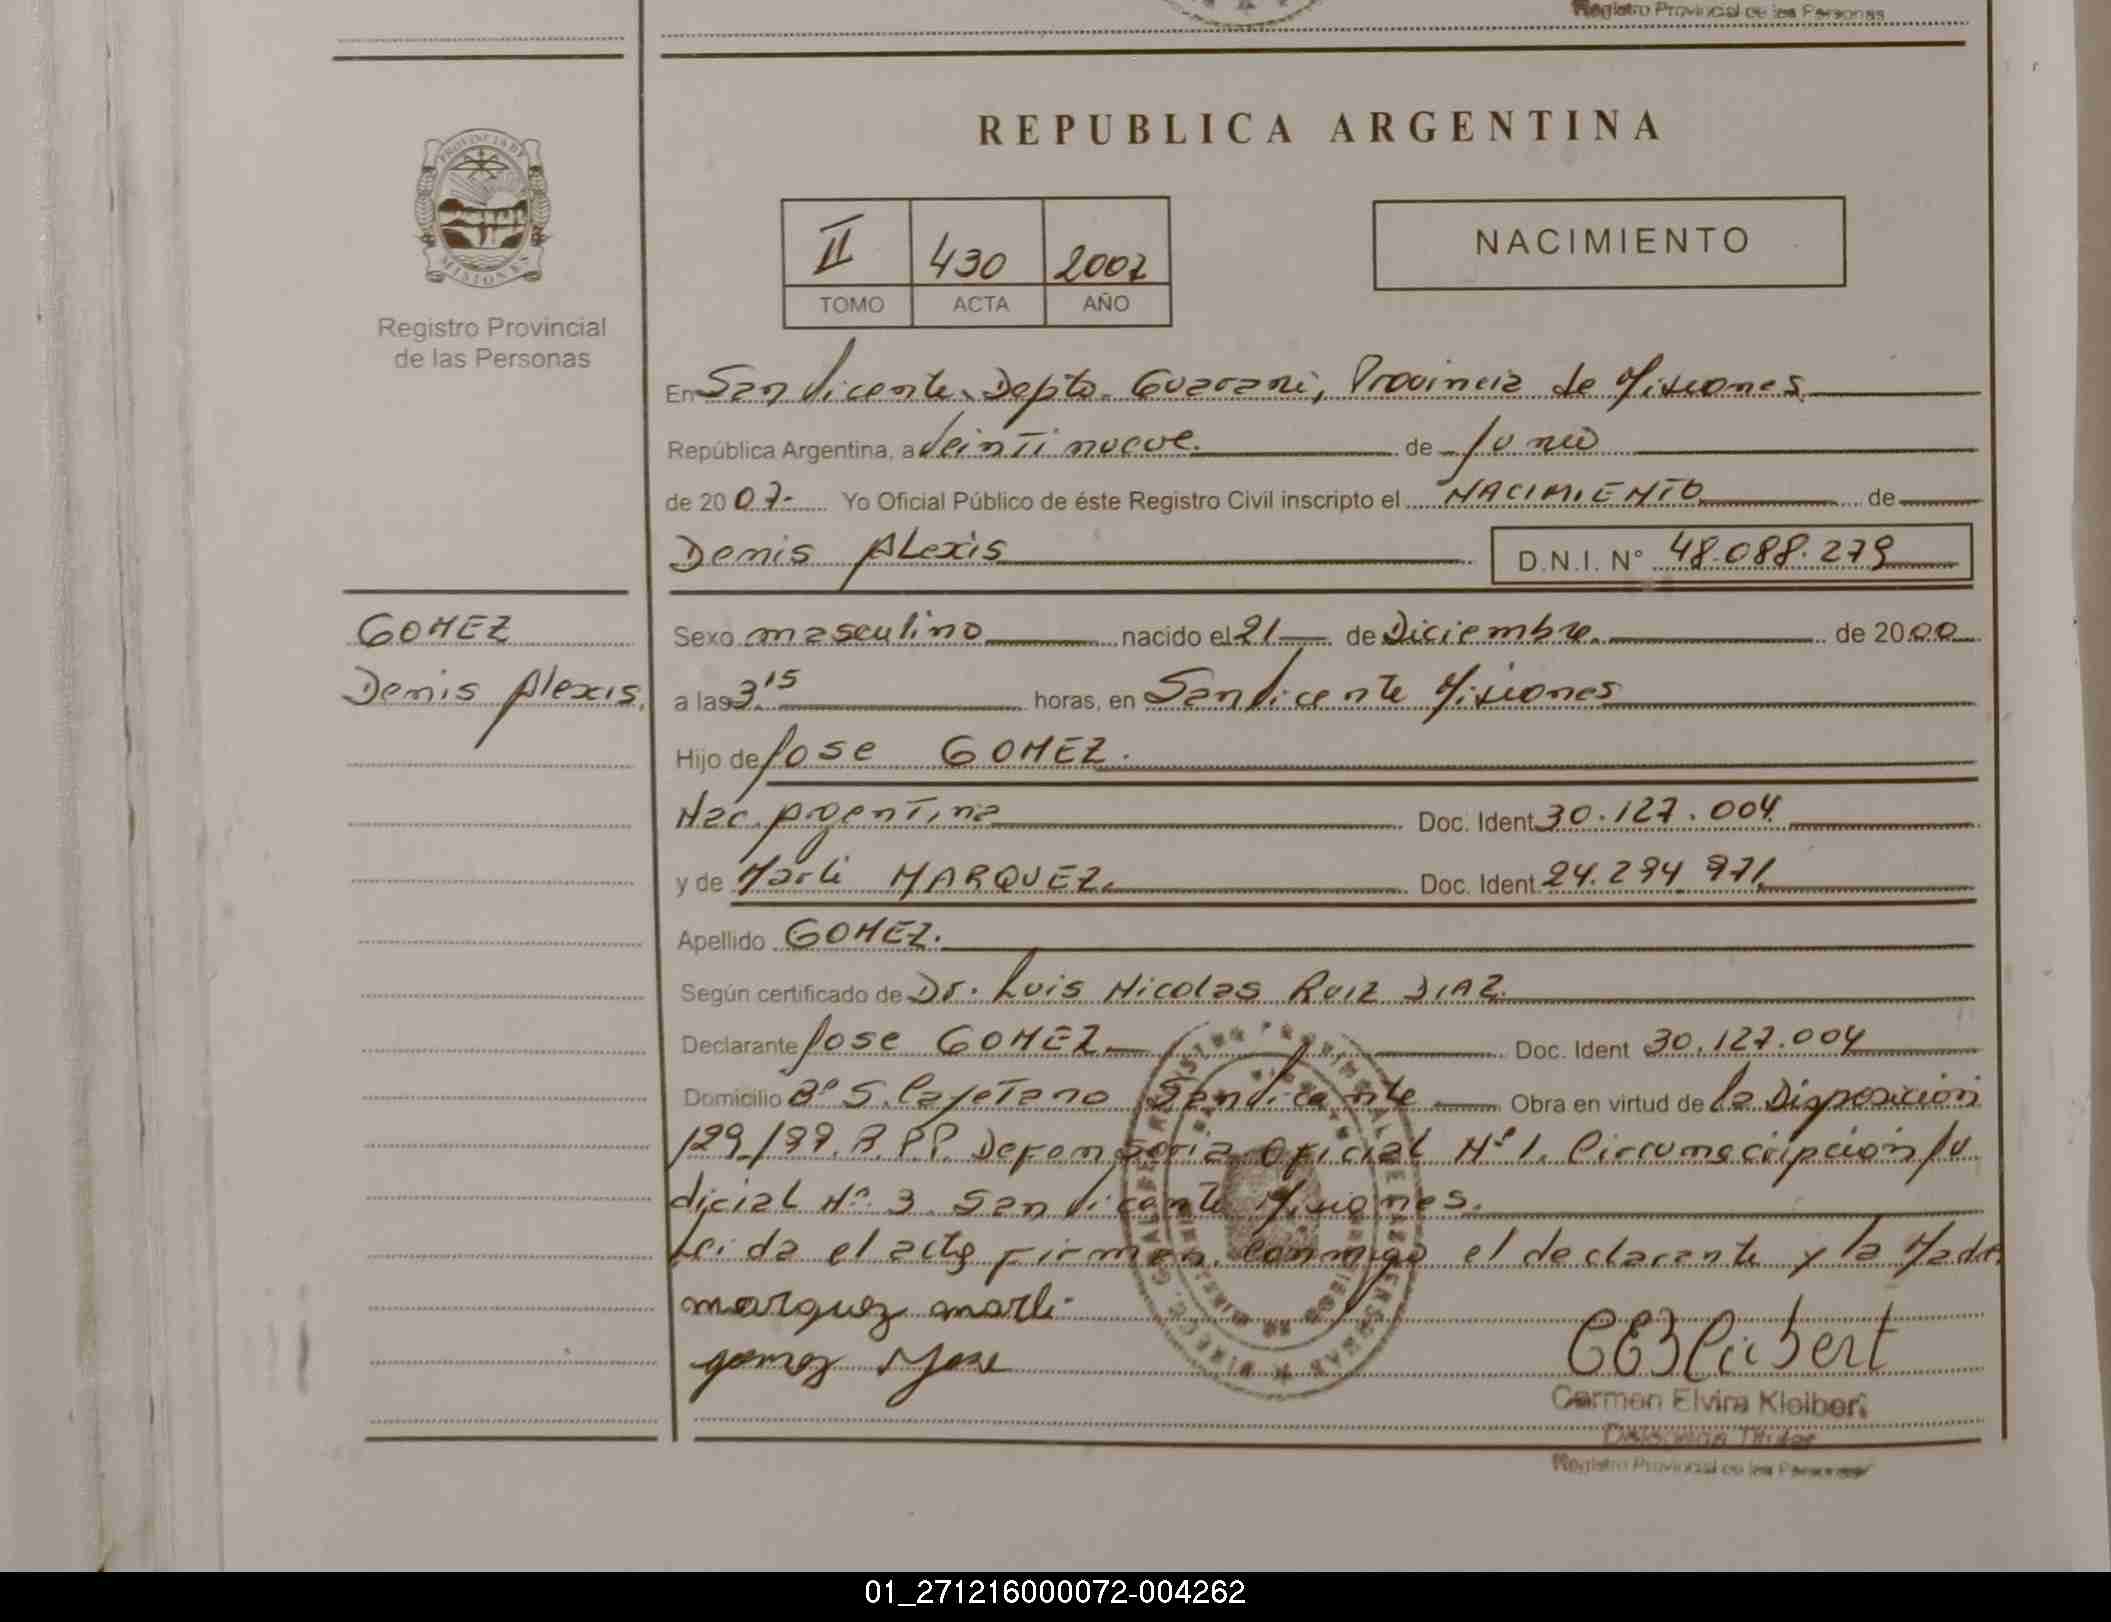 Registro Provincial de las Personas
REPUBLICA ARGENTINA
PROVINCIA DE
MISIONES
Registro Provincial
de las Personas
II 430 2007
TOMO ACTA AÑO
NACIMIENTO
En San Vicente, Depto. Guarani, Provincia de Misiones
República Argentina, a Veintinueve de Junio
de 2007- Yo Oficial Público de éste Registro Civil inscripto el NACIMIENTO de
Denis Alexis D.N.I. N° 48.088.279
GOMEZ
Denis Alexis.
Sexo masculino nacido el 21 de Diciembre de 2000
a las 3.15 horas, en San Vicente Misiones
Hijo de Jose GOMEZ.
Nac. Argentina Doc. Ident 30.127.004
y de Marli MARQUEZ. Doc. Ident 24.294.971
Apellido GOMEZ.
Según certificado de Dr. Luis Nicolas RUIZ DIAZ
Declarante Jose GOMEZ Doc. Ident 30.127.004
Domicilio B° S. Cayetano San Vicente Obra en virtud de la Disposición
129/99. R.P.P. Defensoria Oficial N° 1. Circunscripción Ju
dicial N° 3 San Vicente Misiones.
Leida el acta firman conmigo el declarante y la Madre
marquez marli
gomez Jose
Carmen Elvira Kleibert
Delegada Titular
Registro Provincial de las Personas
01_271216000072-004262